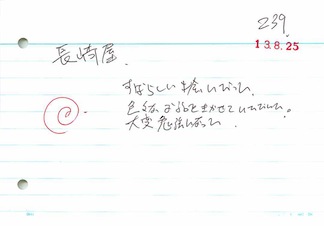 239.
13.8.25
長崎屋.
すばらしい絵でした。
色々なお話をきかせていただいた。
大変勉強になった.